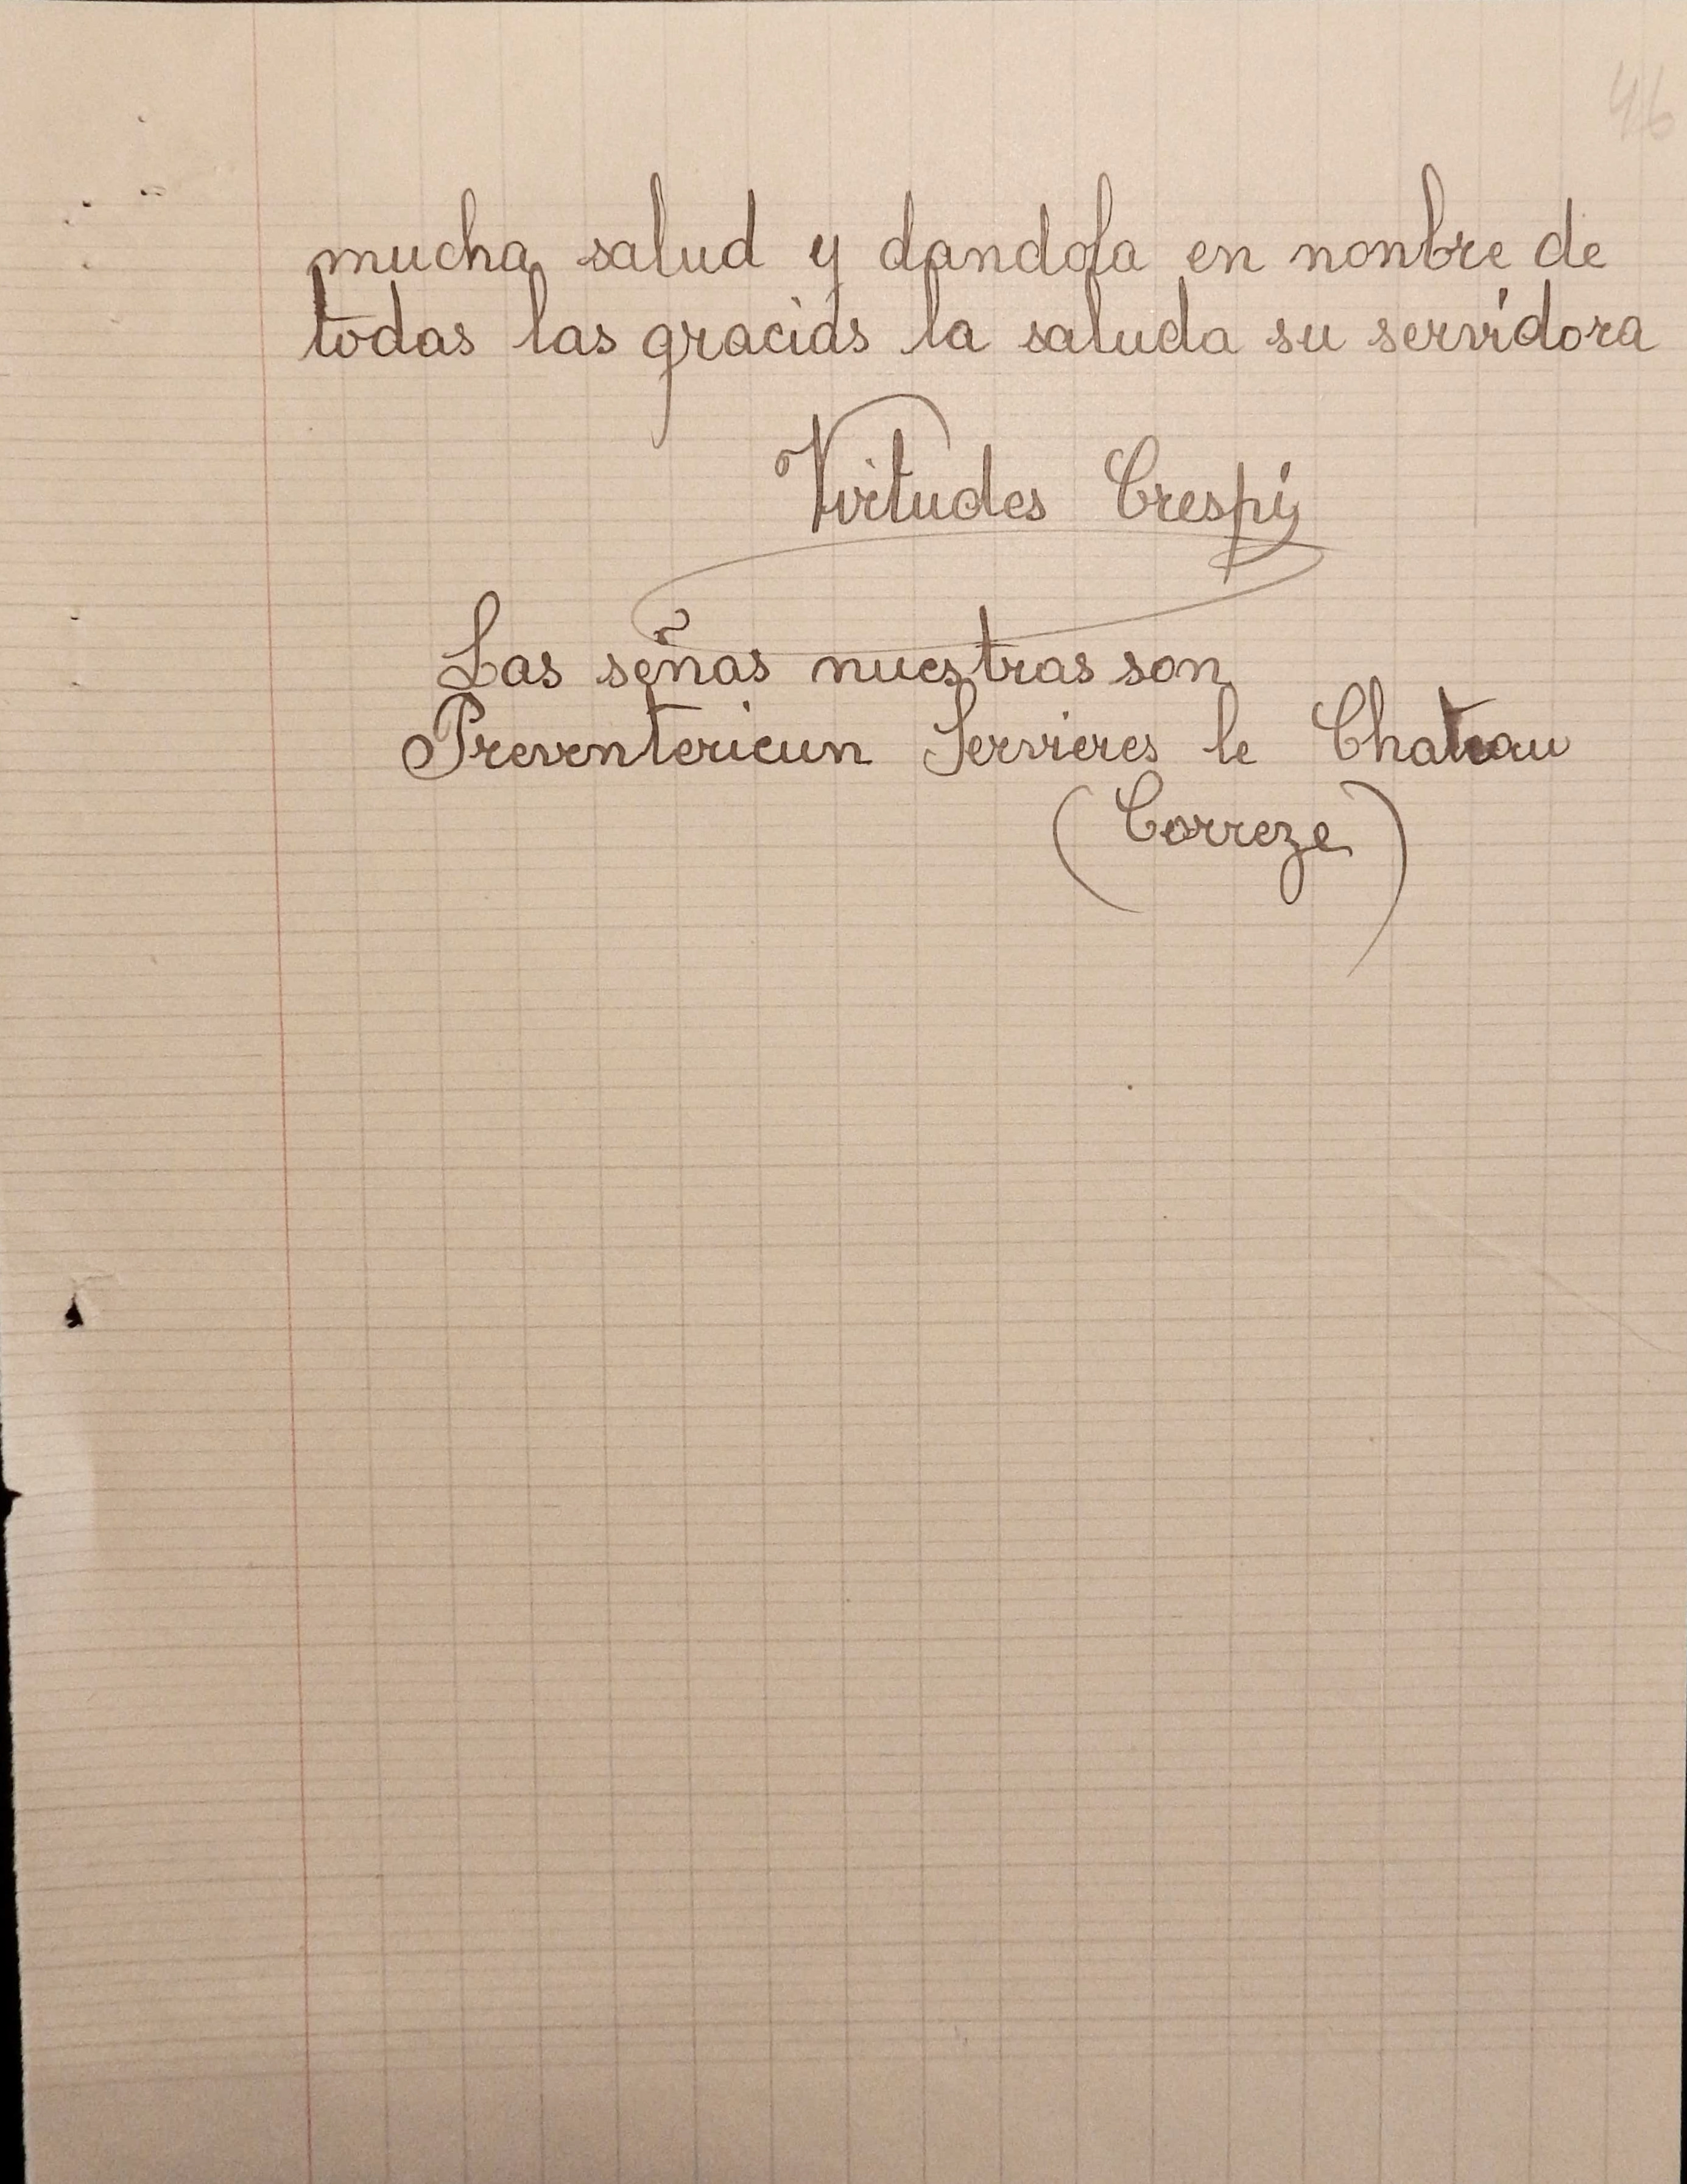 46
mucha salud y dandola en nonbre de
todas las gracias la saluda su servidora
Virtudes Crespí
Las señas nuestras son
Preventericun Servieres le Chateau
(Correze)